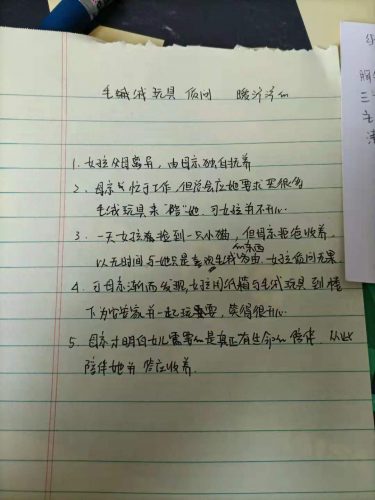 毛绒绒玩具 夜间 暖洋洋的
1. 女孩父母离异，由母亲独自抚养
2. 母亲忙于工作，但总会应她要求买很多
毛绒玩具来"陪"她，可女孩并不开心.
3. 一天女孩捡到一只小猫，但母亲拒绝收养
的东西
以无时间与她只是喜欢毛绒为由，女孩
4. 可母亲渐渐发现女孩用纸箱与毛绒玩具到楼
下为它安家并一起玩耍，笑得很开心.
5. 母亲才明白女儿需要的是真正有生命的陪伴 从此
陪伴她并答应收养.